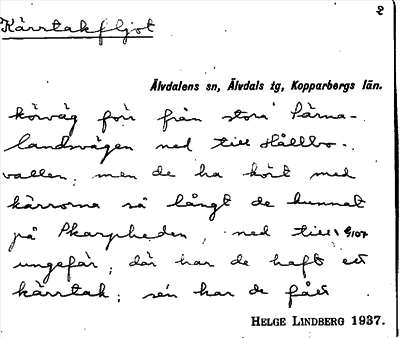 2
Kärrtakfljot
Älvdalens sn, Älvdals tg, Kopparbergs län.
körväg förr från stora Särna-
landsvägen ned till Hållbo-
vallen; men de ha kört med
kärrorna så långt de kunnat
på Skarpheden, ned till G107
ungefär; där har de haft ett
kärrtak; sen har de fått
HELGE LINDBERG 1937.